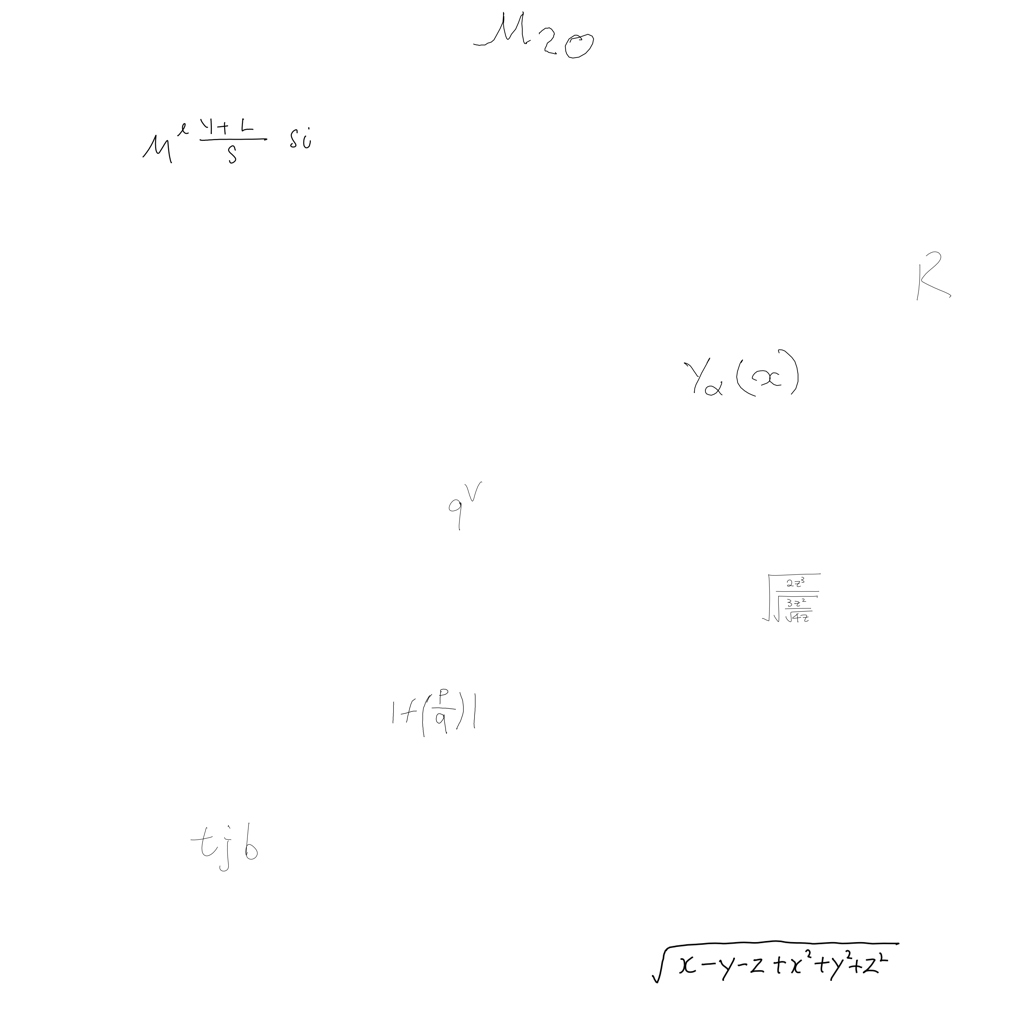 M20
M^e \frac{Y+L}{S} Si
R
Y_α(x)
q^v
\sqrt{\frac{2z^3}{\sqrt{\frac{3z^2}{\sqrt{4z}}}}}
|f(\frac{p}{q})|
tjb
\sqrt{x-y-z+x^2+y^2+z^2}